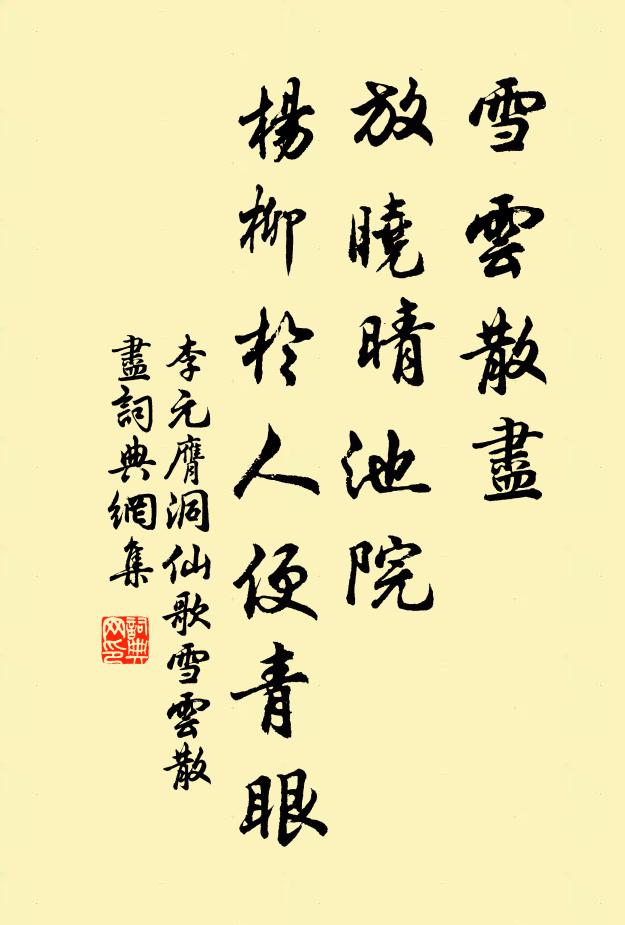 雪雲散盡
放曉晴池院
楊柳於人便青眼
李元膺洞仙歌雪雲散
盡詞典網集
詞典
网印